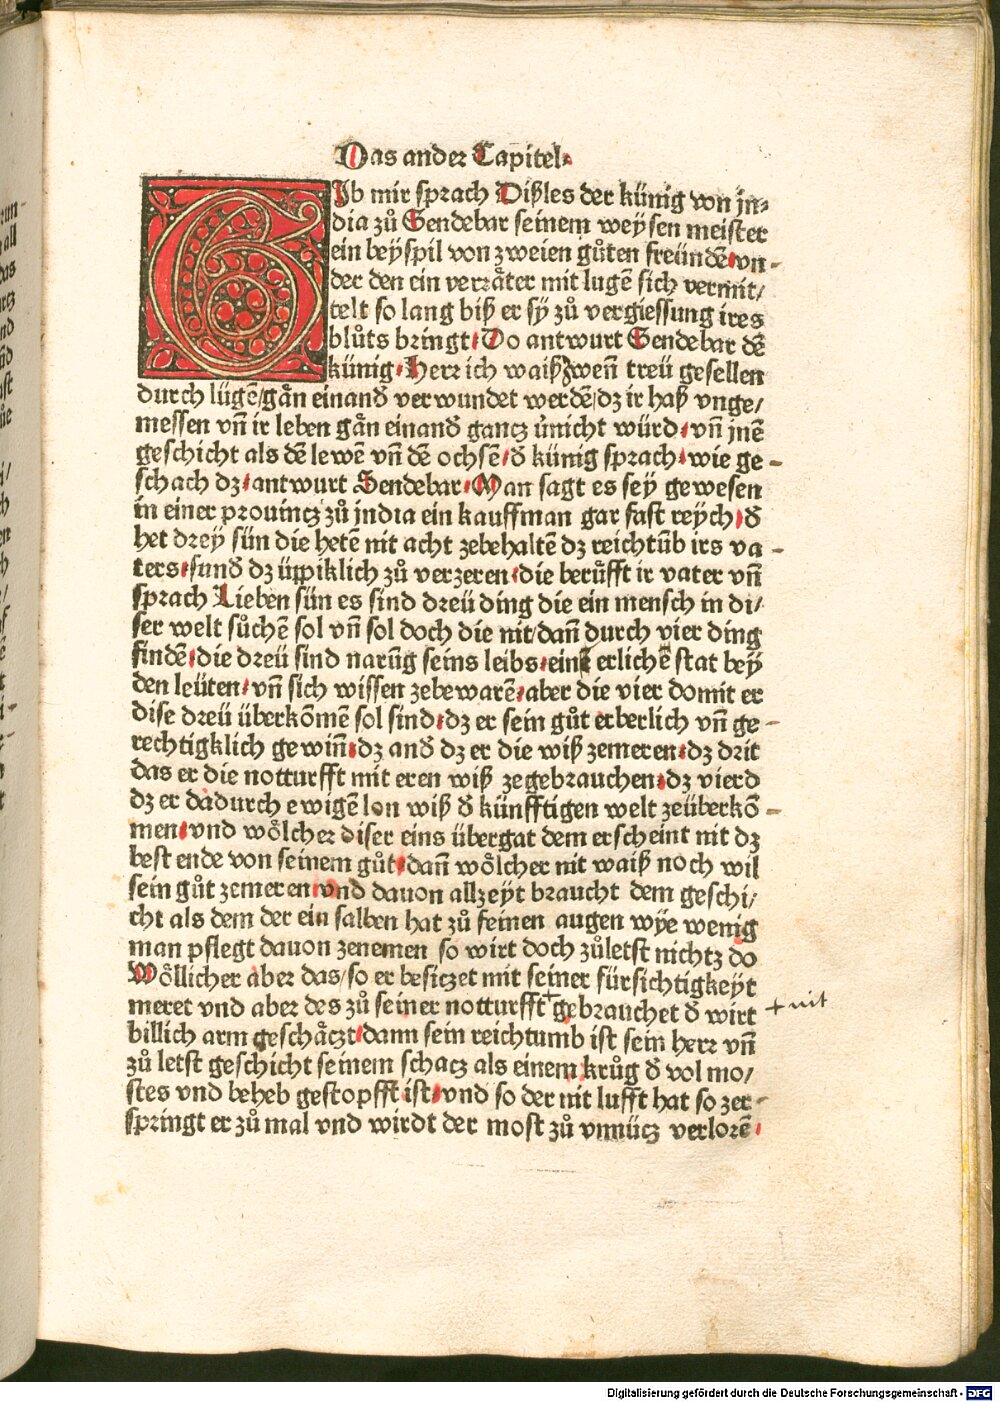 Das ander Capitel.
GIb mir sprach Dißles der künig von jn⸗
dia zů Sendebar seinem weysen meister
ein beyspil von zweien gůten freündē/vn⸗
der den ein verräter mit lugē sich vermit/
telt so lang biß er sy zů vergiessung ires
blůts bringt/Do antwurt Sendebar dē
künig/Herr ich waiß zwen̄ treü gesellen
durch lügē/gãn einand̄ verwundet werdē/dz ir haß vnge/
messen vn̄ ir leben gãn einand̄ gancz ůnicht würd/vn̄ jnē
geschicht als dē lewē vn̄ dē ochsē/d̄ künig sprach/wie ge⸗
schach dz/antwurt Sendebar/Man sagt es sey gewesen
in einer prouincz zů jndia ein kauffman gar fast reych/d̄
het drey sün die hetē nit acht zebehaltē dz reichtūb irs va⸗
ters/sund̄ dz üppiklich zů verzeren/die berůfft ir vater vn̄
sprach Lieben sün es sind dreü ding die ein mensch in di/
ser welt sůchē sol vn̄ sol doch die nit/dan̄ durch vier ding
findē/die dreü sind narūg seins leibs/einē erlichē stat bey
den leüten/vn̄ sich wissen zebewarē/aber die vier domit er
dise dreü überkōmē sol sind/dz er sein gůt erberlich vn̄ ge⸗
rechtigklich gewin̄/dz and̄ dz er die wiß zemeren/dz drit
das er die notturfft mit eren wiß zegebrauchen/dz vierd
dz er dadurch ewigē lon wiß d̄ künfftigen welt zeüberkō⸗
men/vnd wölcher diser eins übergat dem erscheint nit dz
best ende von seinem gůt/dan̄ wölcher nit waiß noch wil
sein gůt zemeren vnd dauon allzeyt braucht dem geschi/
cht als dem der ein salben hat zů seinen augen wye wenig
man pflegt dauon zenemen so wirt doch zůletst nichtz do
Wöllicher aber das/so er besiczet mit seiner fürsichtigkeyt
meret vnd aber des zů seiner notturfft + gebrauchet d̄ wirt + nit
billich arm geschäczt/dann sein reichtumb ist sein herr vn̄
zů letst geschicht seinem schacz als einem krůg d̄ vol mo/
stes vnd beheb gestopfft ist/vnd so der nit lufft hat so zer⸗
springt er zů mal vnd wirdt der most zů vnnücz verlorē/
Digitalisierung gefördert durch die Deutsche Forschungsgemeinschaft - DFG